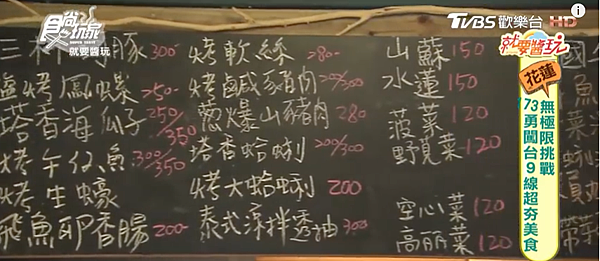 食尚玩家
SUPER TASTE
就要醬玩
TVBS 歡樂台 HD
就要醬玩
花蓮
無極限挑戰
73勇闖台9線超夯美食
三 豚 300
鹽烤鳳螺 250
塔香海瓜子 250/350
烤午仔魚 300/350
烤生蠔
飛魚卵香腸 200
烤軟絲 280
烤鹹豬肉 200/300
蔥爆山豬肉 280
塔香蛤蜊 200/300
烤大蛤蜊 200
泰式涼拌透抽 300
山蘇 150
水蓮 150
菠菜 120
野莧菜 120
空心菜 120
高麗菜 120
國
魚
蜊